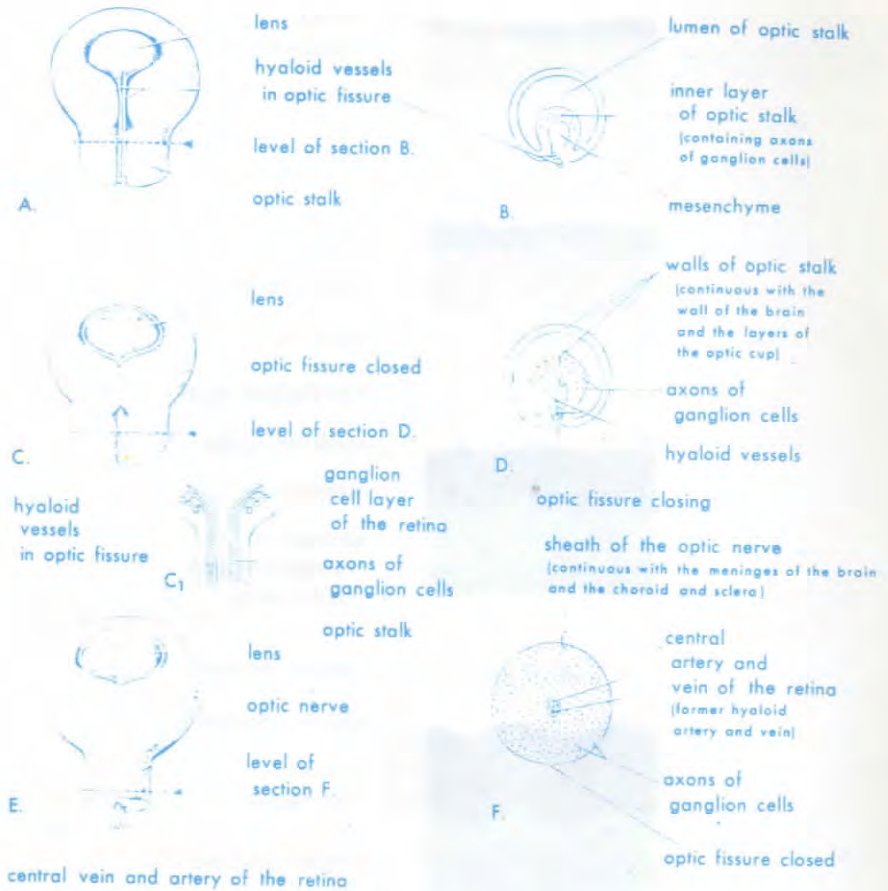 lens
hyaloid vessels
in optic fissure
level of section B.
optic stalk
A.
lumen of optic stalk
inner layer
of optic stalk
(containing axons
of ganglion cells)
mesenchyme
B.
lens
optic fissure closed
level of section D.
C.
walls of optic stalk
(continuous with the
wall of the brain
and the layers of
the optic cup)
axons of
ganglion cells
hyaloid vessels
D.
optic fissure closing
hyaloid
vessels
in optic fissure
ganglion
cell layer
of the retina
axons of
ganglion cells
C1
optic stalk
sheath of the optic nerve
(continuous with the meninges of the brain
and the choroid and sclera)
lens
optic nerve
level of
section F.
E.
central vein and artery of the retina
central
artery and
vein of the retina
(former hyaloid
artery and vein)
axons of
ganglion cells
F.
optic fissure closed